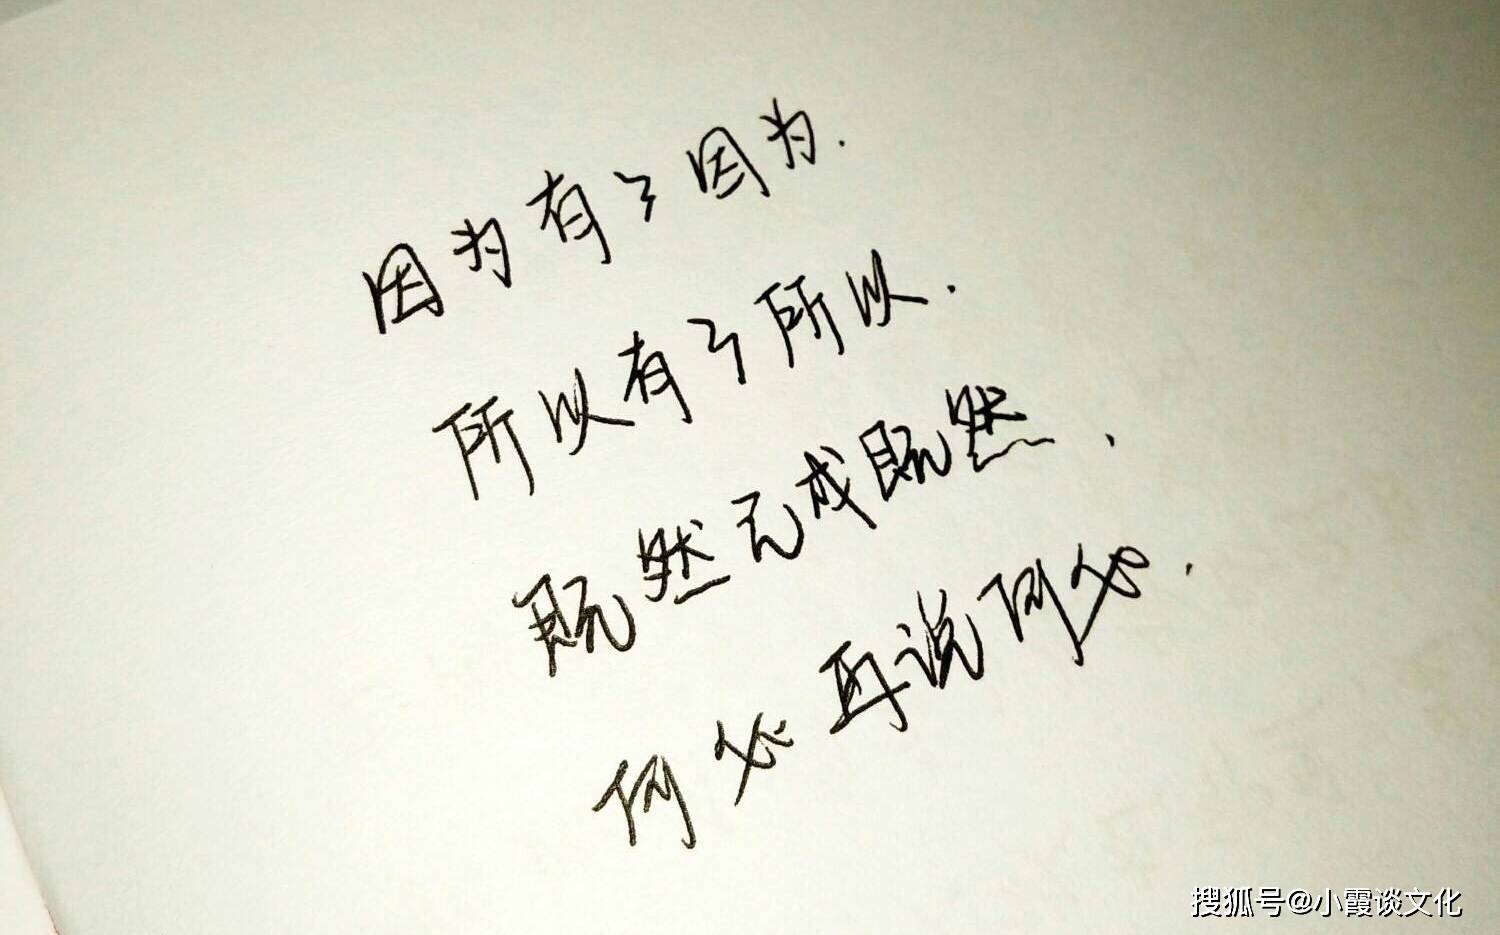 因为有了因为.
所以有了所以.
既然已成既然,
何必再说何必.
搜狐号@小霞谈文化